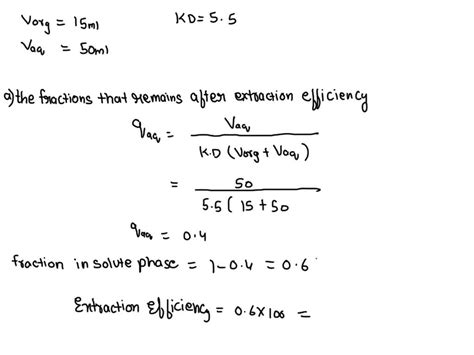 Vorg = 15ml KD = 5.5
Vaq = 50ml
a) the fractions that remains after extraction efficiency
qaq = Vaq / K.D (Vorg + Vaq)
= 50 / 5.5 ( 15 + 50
qaq = 0.4
fraction in solute phase = 1 - 0.4 = 0.6
Extraction Efficiency = 0.6 x 100 =